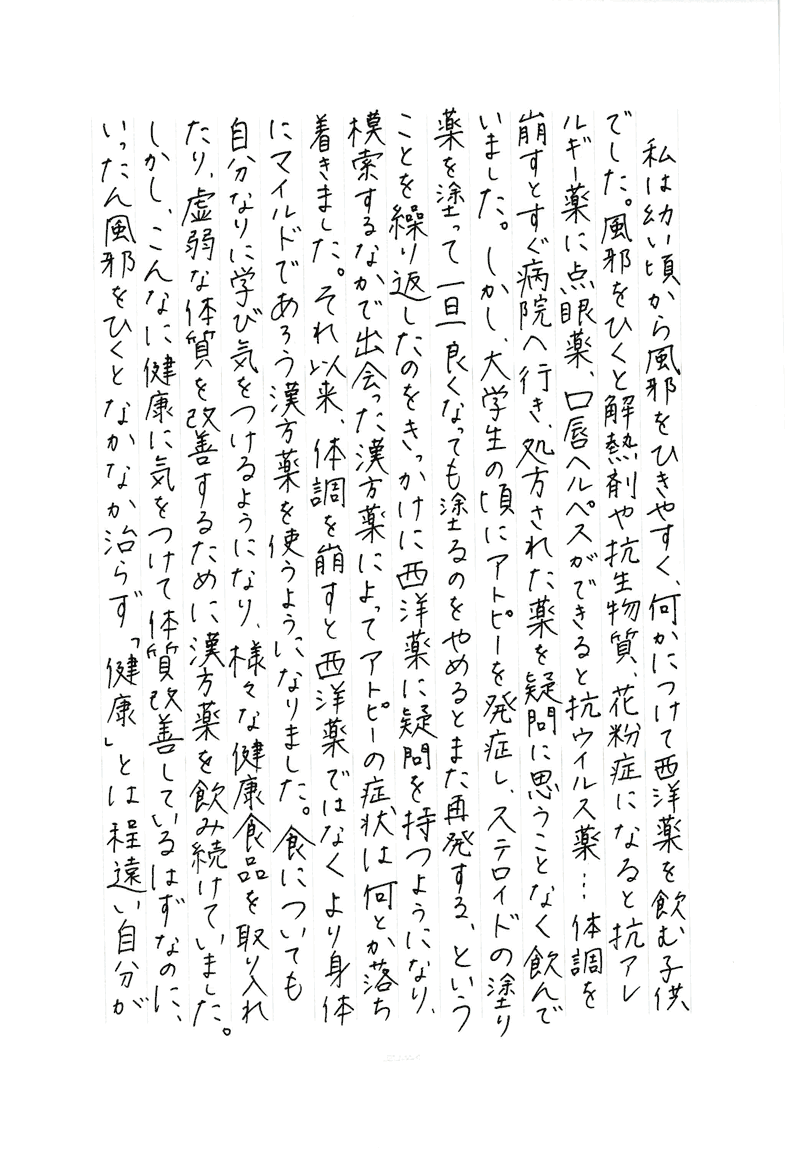 私は幼い頃から風邪をひきやすく、何かにつけて西洋薬を飲む子供
でした。風邪をひくと解熱剤や抗生物質、花粉症になると抗アレ
ルギー薬に点眼薬、口唇ヘルペスができると抗ウイルス薬…体調を
崩すとすぐ病院へ行き、処方された薬を疑問に思うことなく飲んで
いました。しかし、大学生の頃にアトピーを発症し、ステロイドの塗り
薬を塗って一旦良くなっても塗るのをやめるとまた再発する、という
ことを繰り返したのをきっかけに西洋薬に疑問を持つようになり、
模索するなかで出会った漢方薬によってアトピーの症状は何とか落ち
着きました。それ以来、体調を崩すと西洋薬ではなくより身体
にマイルドであろう漢方薬を使うようになりました。食についても
自分なりに学び気をつけるようになり、様々な健康食品を取り入れ
たり、虚弱な体質を改善するために漢方薬を飲み続けていました。
しかし、こんなに健康に気をつけて体質改善しているはずなのに、
いったん風邪をひくとなかなか治らず「健康」とは程遠い自分が